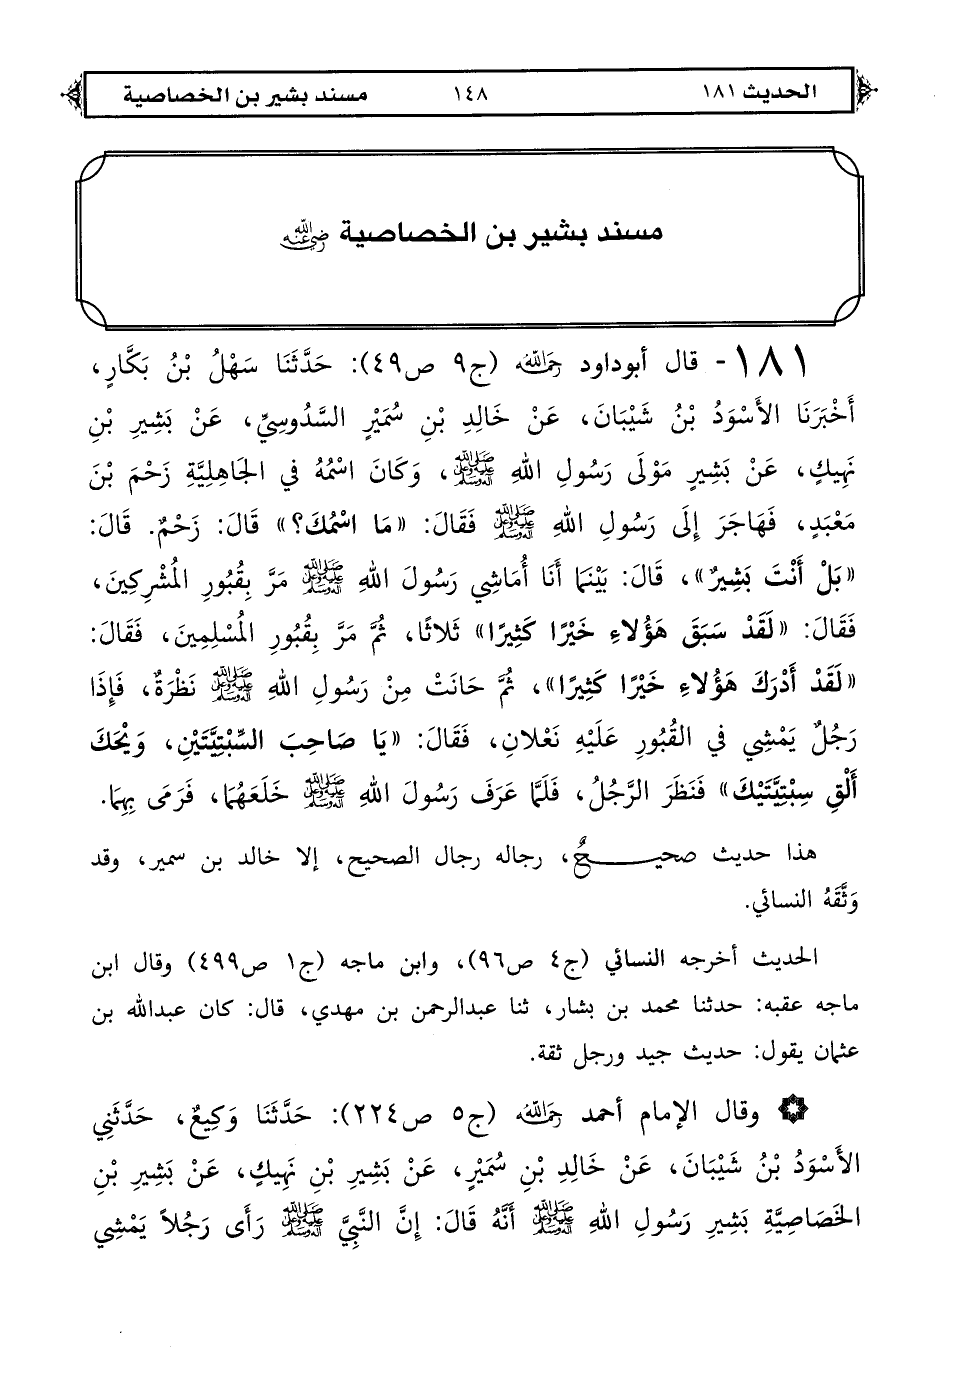 الحديث ١٨١ ١٤٨ مسند بشير بن الخصاصية
مسند بشير بن الخصاصية رضي الله عنه
١٨١- قال أبوداود رحمه الله (ج٩ ص٤٩): حَدَّثَنَا سَهْلُ بْنُ بَكَّارٍ،
أَخْبَرَنَا الأَسْوَدُ بْنُ شَيْبَانَ، عَنْ خَالِدِ بْنِ سُمَيْرٍ السَّدُوسِيِّ، عَنْ بَشِيرِ بْنِ
نَهِيكٍ، عَنْ بَشِيرٍ مَوْلَى رَسُولِ اللهِ ﷺ، وَكَانَ اسْمُهُ فِي الجَاهِلِيَّةِ زَحْمَ بْنَ
مَعْبَدٍ، فَهَاجَرَ إِلَى رَسُولِ اللهِ ﷺ فَقَالَ: «مَا اسْمُكَ؟» قَالَ: زَحْمٌ. قَالَ:
«بَلْ أَنْتَ بَشِيرٌ»، قَالَ: بَيْنَمَا أَنَا أُمَاشِي رَسُولَ اللهِ ﷺ مَرَّ بِقُبُورِ المُشْرِكِينَ،
فَقَالَ: «لَقَدْ سَبَقَ هَؤُلاءِ خَيْرًا كَثِيرًا» ثَلاثًا، ثُمَّ مَرَّ بِقُبُورِ المُسْلِمِينَ، فَقَالَ:
«لَقَدْ أَدْرَكَ هَؤُلاءِ خَيْرًا كَثِيرًا»، ثُمَّ حَانَتْ مِنْ رَسُولِ اللهِ ﷺ نَظْرَةٌ، فَإِذَا
رَجُلٌ يَمْشِي فِي القُبُورِ عَلَيْهِ نَعْلانِ، فَقَالَ: «يَا صَاحِبَ السِّبْتِيَّتَيْنِ، وَيْحَكَ
أَلْقِ سِبْتِيَّتَيْكَ» فَنَظَرَ الرَّجُلُ، فَلَمَّا عَرَفَ رَسُولَ اللهِ ﷺ خَلَعَهُمَا، فَرَمَى بِهِمَا.
هذا حديث صحيــــحٌ، رجاله رجال الصحيح، إلا خالد بن سمير، وقد
وَثَّقَهُ النسائي.
الحديث أخرجه النسائي (ج٤ ص٩٦)، وابن ماجه (ج١ ص٤٩٩) وقال ابن
ماجه عقبه: حدثنا محمد بن بشار، ثنا عبدالرحمن بن مهدي، قال: كان عبدالله بن
عثمان يقول: حديث جيد ورجل ثقة.
وقال الإمام أحمد رحمه الله (ج٥ ص٢٢٤): حَدَّثَنَا وَكِيعٌ، حَدَّثَنِي
الأَسْوَدُ بْنُ شَيْبَانَ، عَنْ خَالِدِ بْنِ سُمَيْرٍ، عَنْ بَشِيرِ بْنِ نَهِيكٍ، عَنْ بَشِيرِ بْنِ
الخَصَاصِيَّةِ بَشِيرِ رَسُولِ اللهِ ﷺ أَنَّهُ قَالَ: إِنَّ النَّبِيَّ ﷺ رَأَى رَجُلاً يَمْشِي